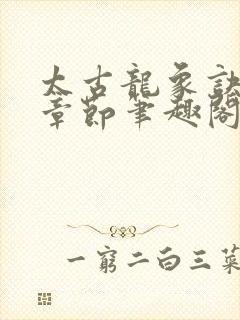 太古龍象訣
章節筆趣閣
一窮二白三菜